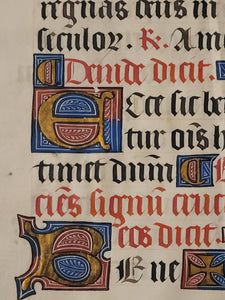 regnas deus in
seculor. R. Ame
Deinde dicit.
Ecce sic be
tur oīs h
timet dnm̄
ciēs signū cruc
eos dicit.
Bene ✠